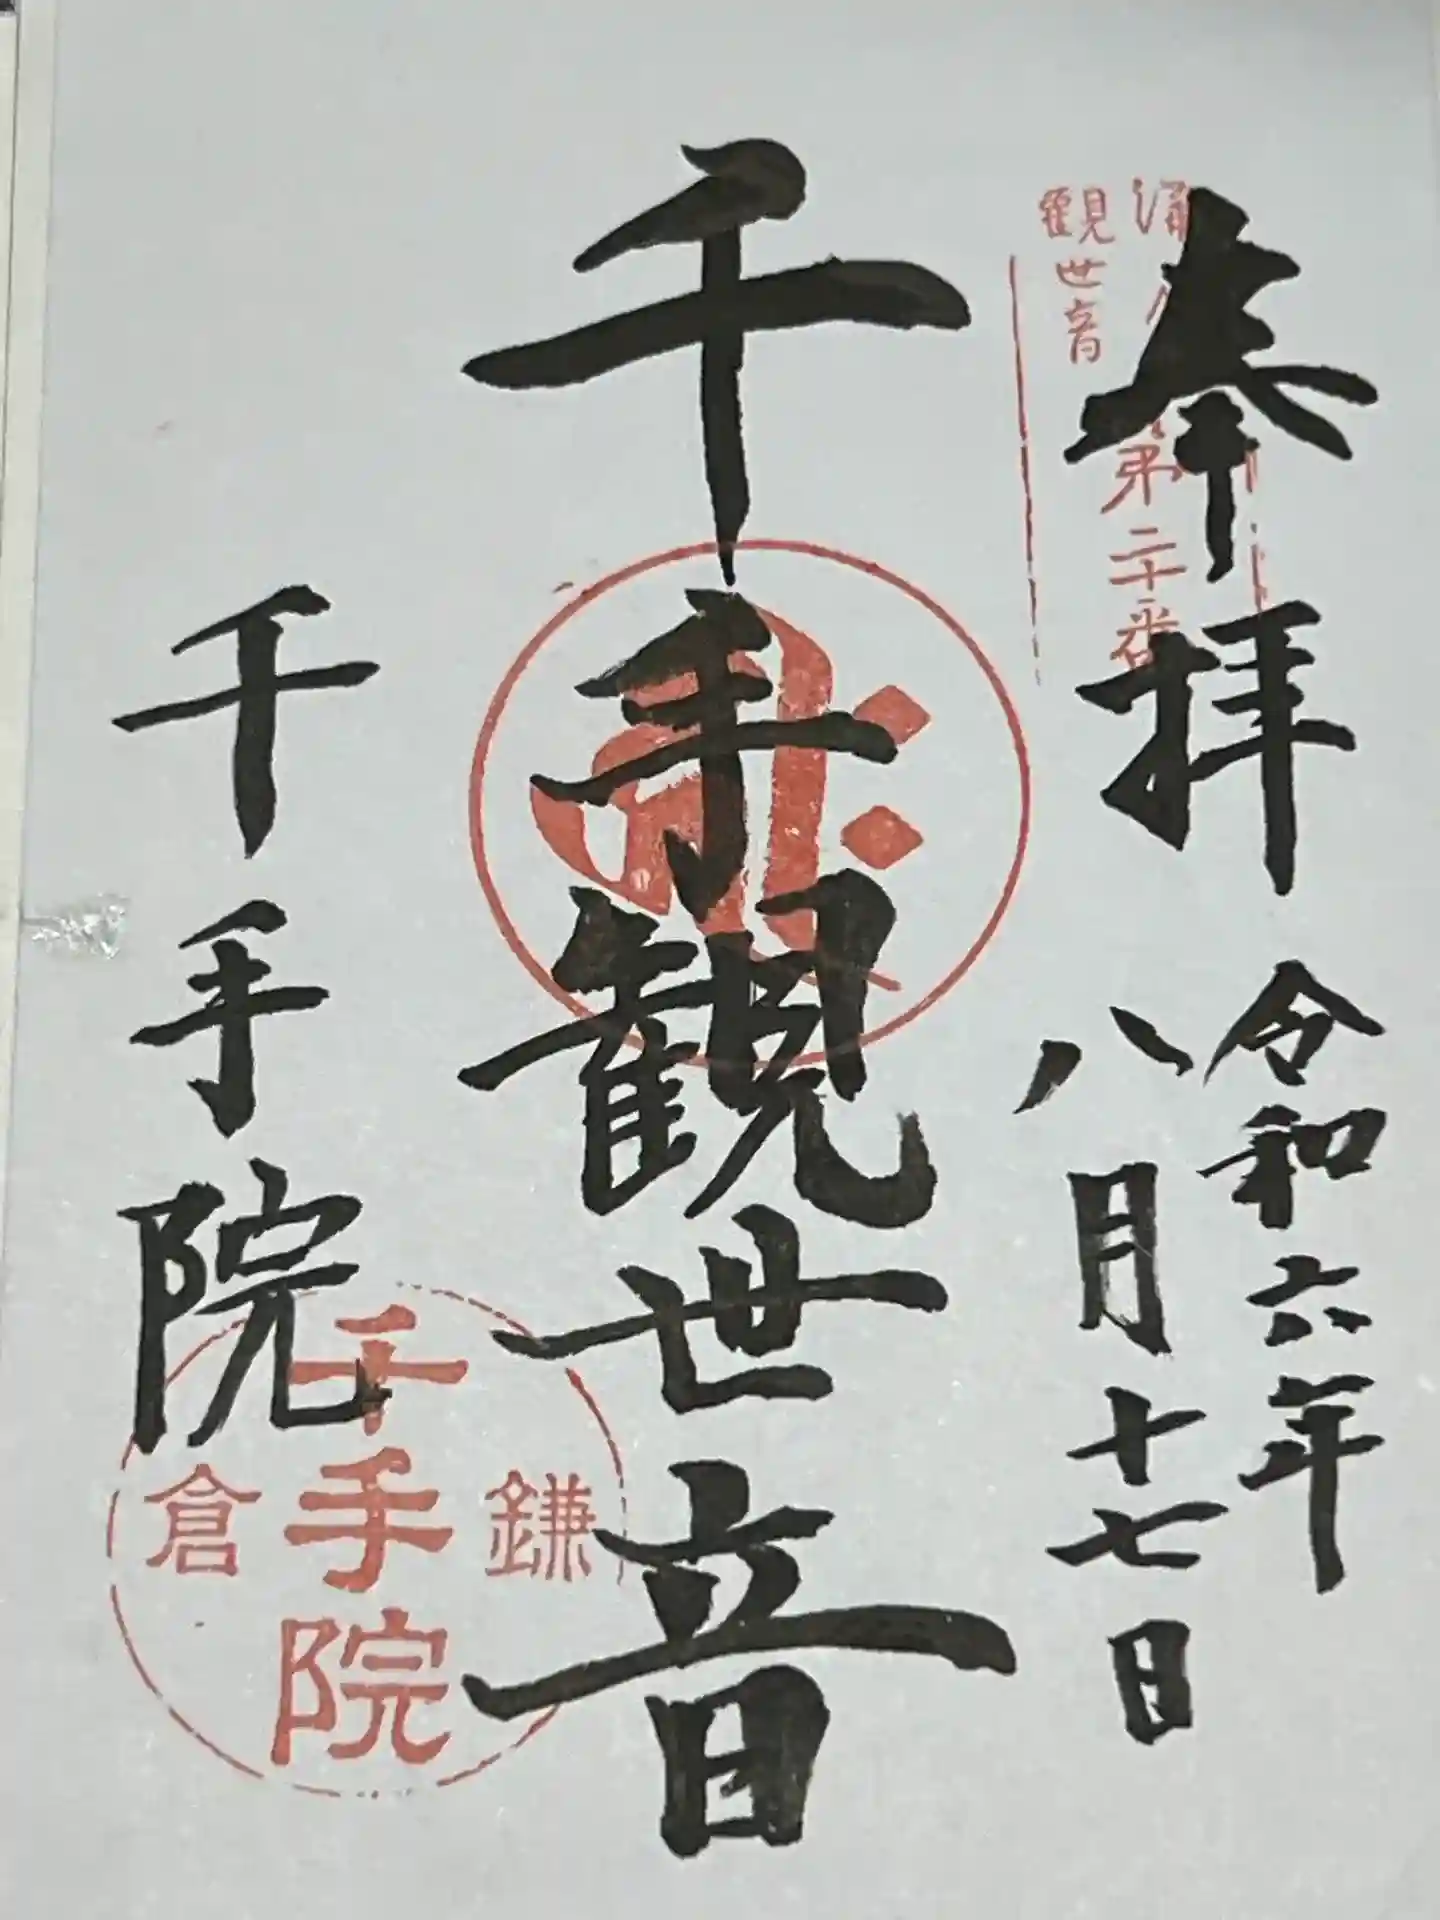 奉拝
令和六年
八月十七日
第二十番
観世音
千手観世音
千手院
鎌
千手院
倉